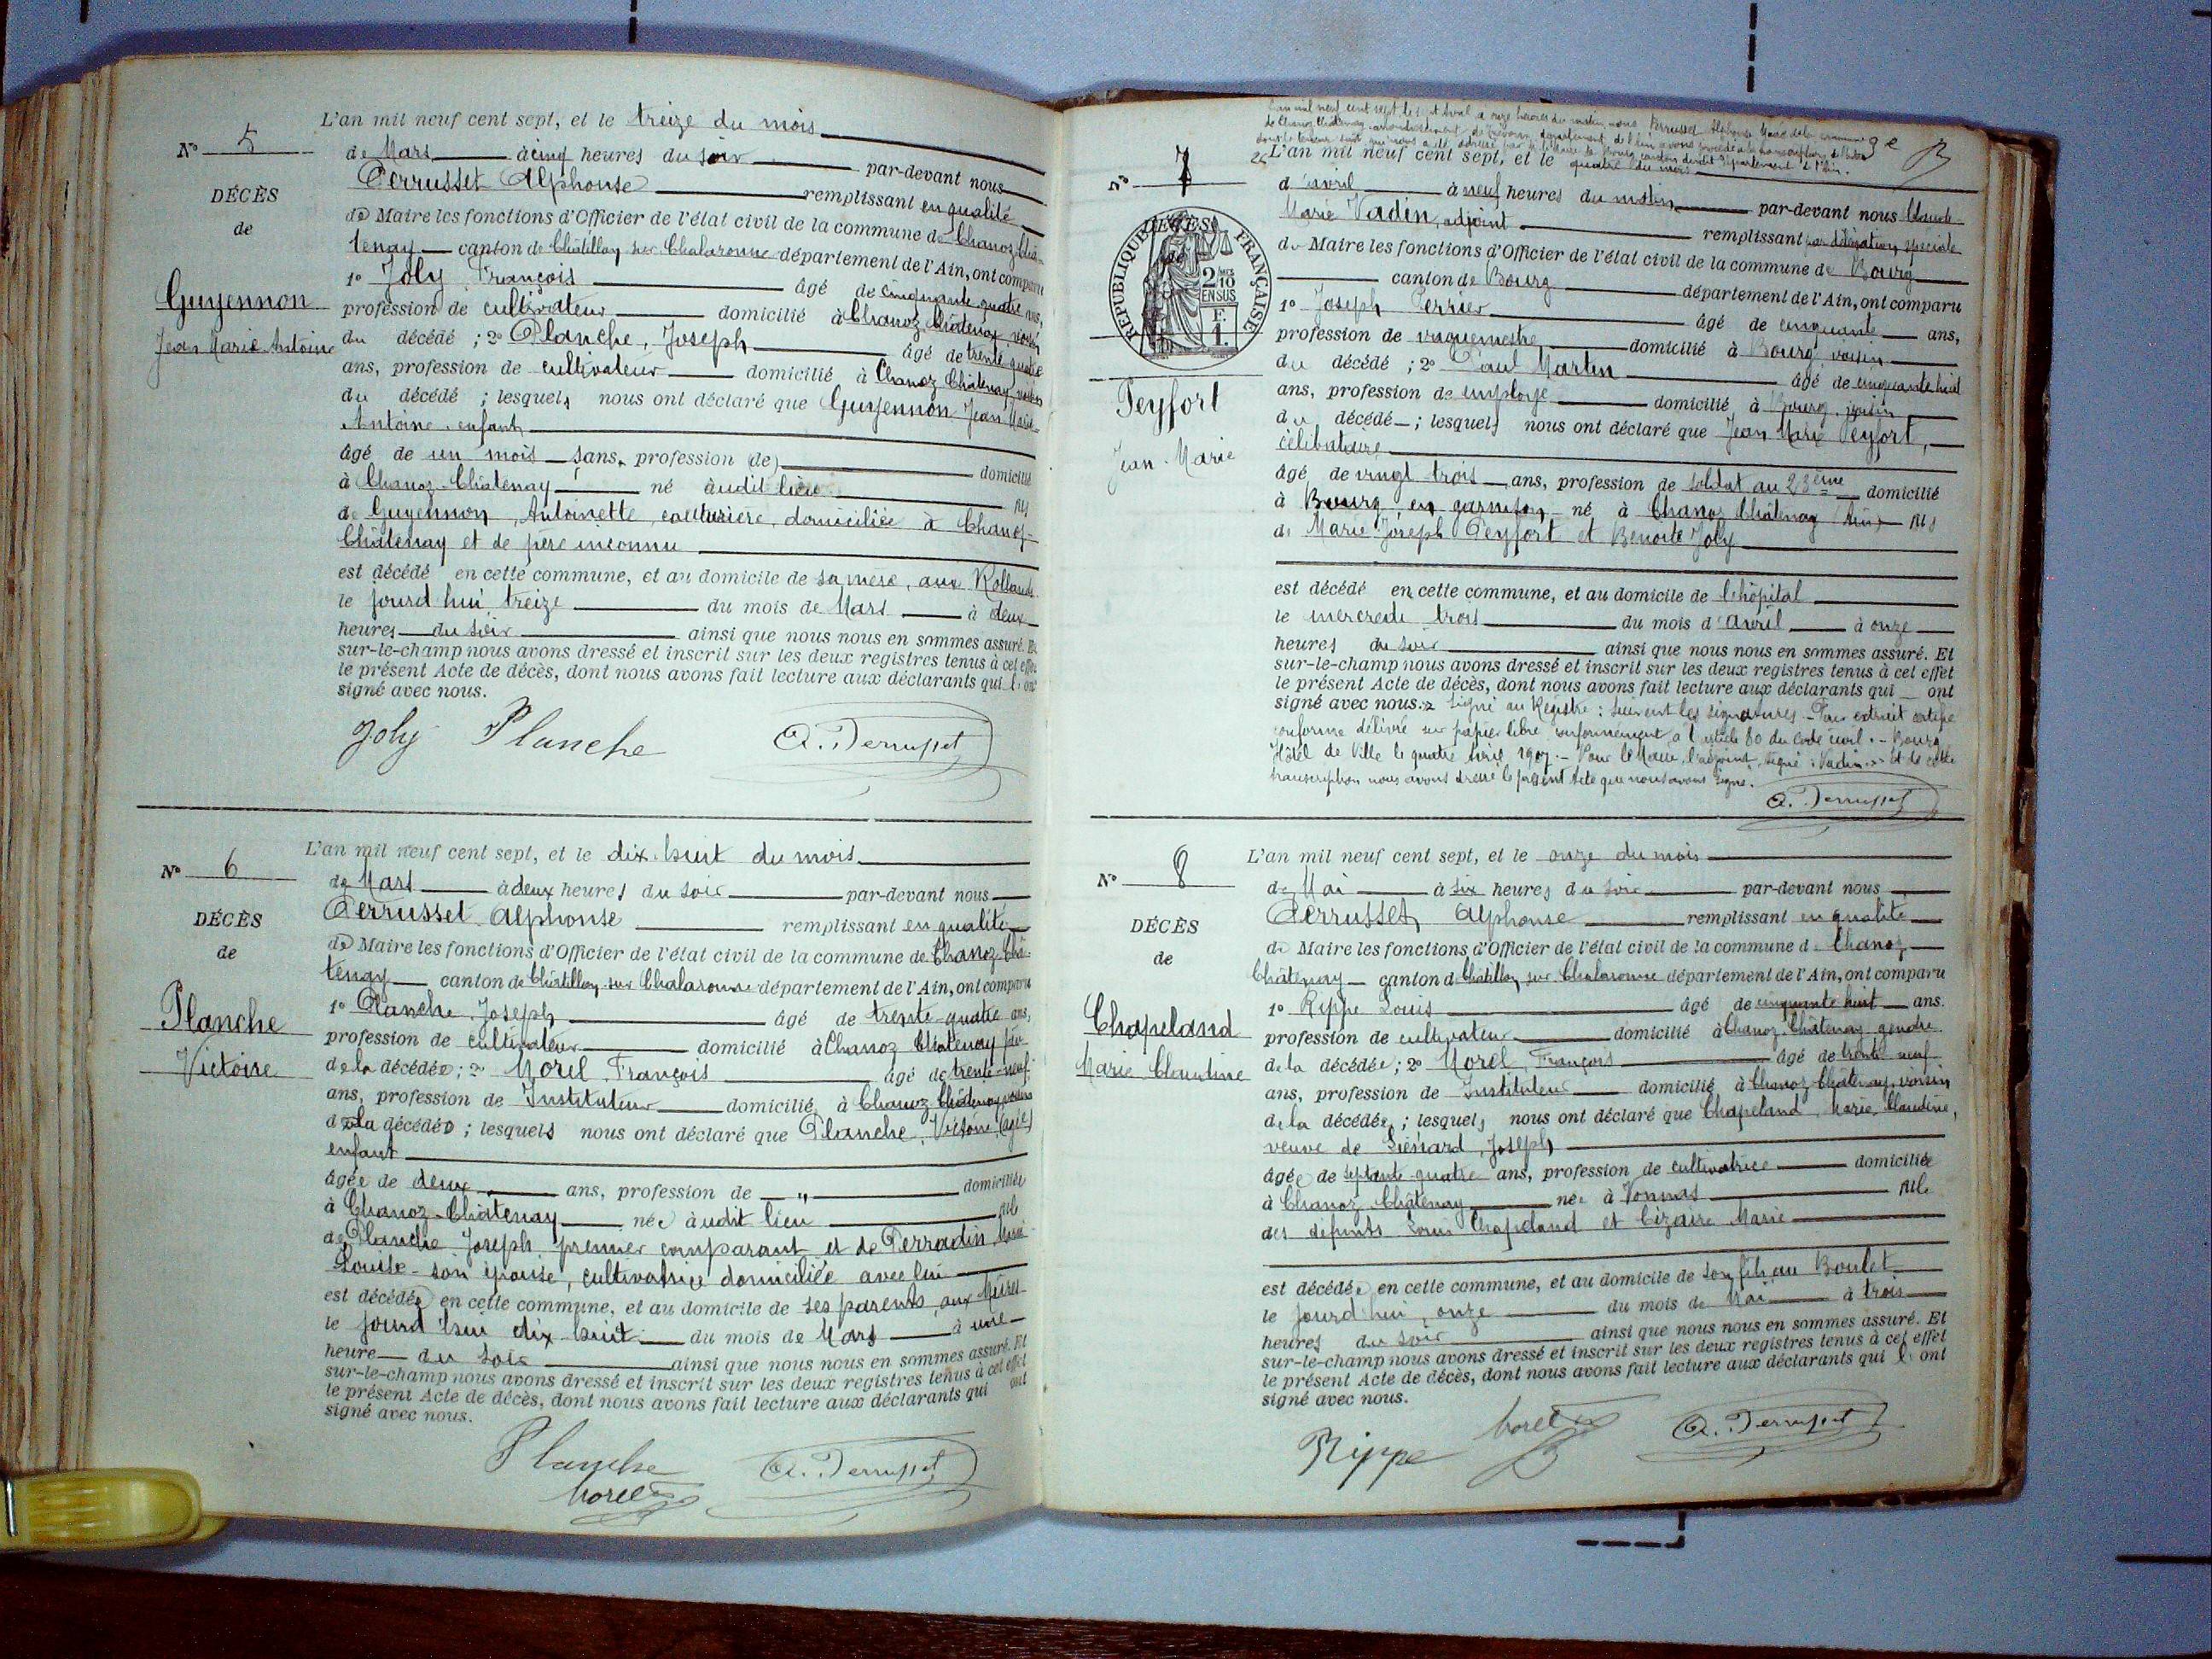 N° 5
DÉCÈS
de
Guyennon
Jean Marie Antoine
L'an mil neuf cent sept, et le treize du mois
de Mars à cinq heures du soir par-devant nous
Perrusset Alphonse remplissant en qualité
de Maire les fonctions d'Officier de l'état civil de la commune de Chanoz Châ-
tenay canton de Châtillon sur Chalaronne département de l'Ain, ont comparu
1° Joly François âgé de cinquante quatre ans,
profession de cultivateur domicilié à Chanoz Châtenay, voisin
du décédé ; 2° Planche, Joseph âgé de trente quatre
ans, profession de cultivateur domicilié à Chanoz Châtenay, voisin
du décédé ; lesquels nous ont déclaré que Guyennon Jean Marie
Antoine enfant
âgé de un mois sans profession (de) domicilié
à Chanoz-Châtenay né audit lieu fils
de Guyennon, Antoinette, couturière, domiciliée à Chanoz-
Châtenay et de père inconnu
est décédé en cette commune, et au domicile de sa mère, aux Rollands
le jourd'hui treize du mois de Mars à deux
heures du soir ainsi que nous nous en sommes assuré. Et
sur-le-champ nous avons dressé et inscrit sur les deux registres tenus à cet effet
le présent Acte de décès, dont nous avons fait lecture aux déclarants qui l'ont
signé avec nous.
Joly Planche A. Perrusset
N° 6
DÉCÈS
de
Planche
Victoire
L'an mil neuf cent sept, et le dix-huit du mois
de Mars à deux heures du soir par-devant nous
Perrusset Alphonse remplissant en qualité
de Maire les fonctions d'Officier de l'état civil de la commune de Chanoz Châ-
tenay canton de Châtillon sur Chalaronne département de l'Ain, ont comparu
1° Planche Joseph âgé de trente-quatre ans,
profession de cultivateur domicilié à Chanoz Châtenay père
de la décédée ; 2° Morel François âgé de trente-neuf
ans, profession de Instituteur domicilié à Chanoz Châtenay voisin
de la décédée ; lesquels nous ont déclaré que Planche, Victoire, (âgée)
enfant
âgée de deux ans, profession de " domiciliée
à Chanoz-Châtenay née audit lieu fille
de Planche Joseph premier comparant et de Perradin, Marie
Louise son épouse, cultivatrice domiciliée avec lui
est décédée en cette commune, et au domicile de ses parents, aux
le jourd'hui dix-huit du mois de Mars à une
heure du soir ainsi que nous nous en sommes assuré. Et
sur-le-champ nous avons dressé et inscrit sur les deux registres tenus à cet effet
le présent Acte de décès, dont nous avons fait lecture aux déclarants qui ont
signé avec nous.
Planche A. Perrusset
Morel
L'an mil neuf cent sept le sept Avril à onze heures du matin, nous Perrusset Alphonse Maire de la commune
de Chanoz Châtenay arrondissement de Trévoux, département de l'Ain avons procédé à la transcription de l'acte
dont la teneur suit qui nous a été adressé par M. le Maire de Bourg canton dudit département de l'Ain.
N° 7
RÉPUBLIQUE FRANÇAISE
2/10 EN SUS
F. 1.
Peyfort
Jean-Marie
L'an mil neuf cent sept, et le quatre du mois
d'avril à neuf heures du matin par-devant nous Claude-
Marie Vadin, adjoint remplissant par délégation spéciale
du Maire les fonctions d'Officier de l'état civil de la commune de Bourg
canton de Bourg département de l'Ain, ont comparu
1° Joseph Perrier âgé de cinquante ans,
profession de vaguemestre domicilié à Bourg voisin
du décédé ; 2° Paul Martin âgé de cinquante huit
ans, profession de employé domicilié à Bourg, voisin
du décédé ; lesquels nous ont déclaré que Jean Marie Peyfort,
célibataire
âgé de vingt trois ans, profession de soldat au 23ème domicilié
à Bourg en garnison né à Chanoz Châtenay (Ain) fils
de Marie Joseph Peyfort et Benoite Joly
est décédé en cette commune, et au domicile de l'hôpital
le mercredi trois du mois d'avril à onze
heures du soir ainsi que nous nous en sommes assuré. Et
sur-le-champ nous avons dressé et inscrit sur les deux registres tenus à cet effet
le présent Acte de décès, dont nous avons fait lecture aux déclarants qui ont
signé avec nous. Signé au Registre : suivent les signatures - Pour extrait certifié
conforme délivré sur papier libre conformément à l'article 80 du Code civil. - Bourg
Hôtel de Ville le quatre Avril 1907. - Pour le Maire, l'adjoint, signé : Vadin. - Et de cette
transcription nous avons dressé le présent Acte que nous avons signé.
A. Perrusset
N° 8
DÉCÈS
de
Chapeland
Marie Claudine
L'an mil neuf cent sept, et le onze du mois
de Mai à six heures du soir par-devant nous
Perrusset Alphonse remplissant en qualité
de Maire les fonctions d'Officier de l'état civil de la commune d Chanoz
Châtenay canton d Châtillon sur Chalaronne département de l'Ain, ont comparu
1° Rippe Louis âgé de cinquante huit ans.
profession de cultivateur domicilié à Chanoz Châtenay gendre
de la décédée ; 2° Morel François âgé de trente neuf
ans, profession de Instituteur domicilié à Chanoz Châtenay, voisin
de la décédée ; lesquels nous ont déclaré que Chapeland, Marie Claudine,
veuve de Joseph
âgée de septante-quatre ans, profession de cultivatrice domiciliée
à Chanoz Châtenay née à Vonnas fille
des défunts Louis Chapeland et Cizaire Marie
est décédée en cette commune, et au domicile de son fils, au Boulet
le jourd'hui, onze du mois de Mai à trois
heures du soir ainsi que nous nous en sommes assuré. Et
sur-le-champ nous avons dressé et inscrit sur les deux registres tenus à cet effet
le présent Acte de décès, dont nous avons fait lecture aux déclarants qui l'ont
signé avec nous.
Rippe Morel A. Perrusset